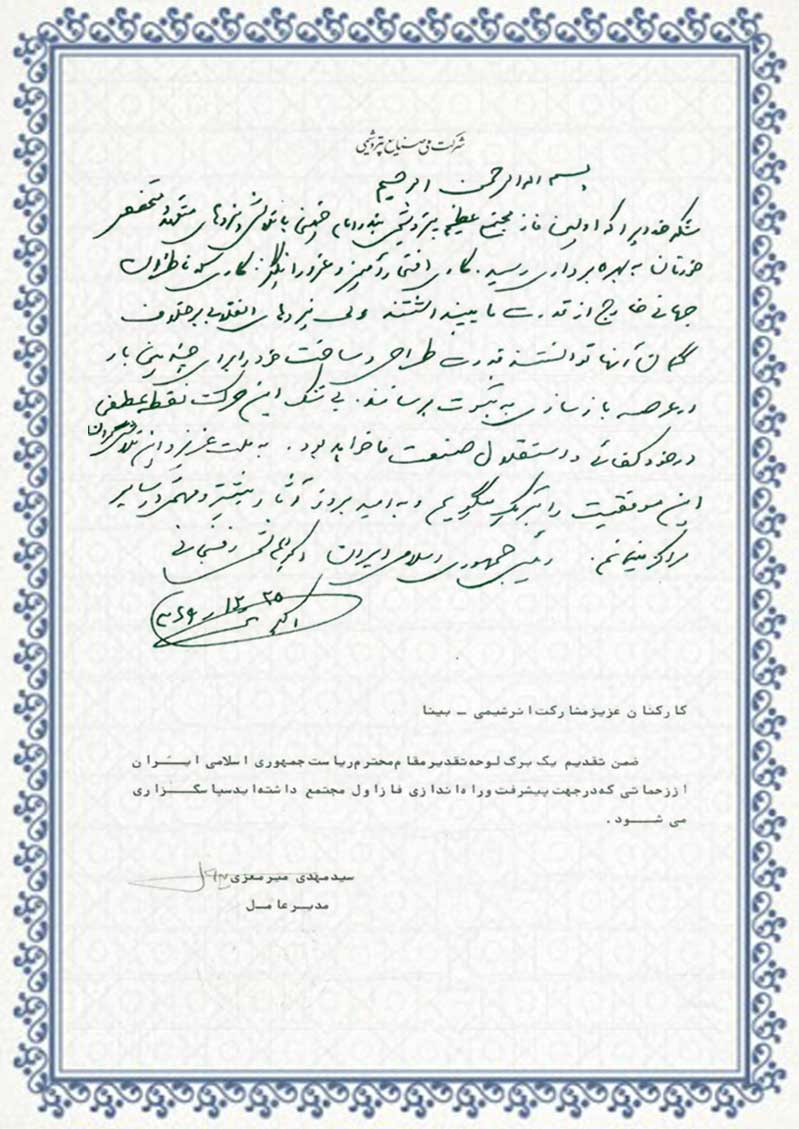 شرکت ملی صنایع پتروشیمی
بسم الله الرحمن الرحیم
شکر خدا را که اولین فاز مجتمع عظیم پتروشیمی بندر امام خمینی با تلاش نیروهای متعهد و متخصص
خودتان به بهره برداری رسید. کاری افتخار آمیز و غرور انگیز، کاری که ناظران
جهانی خارج از قدرت ما می‌پنداشتند ولی نیروهای انقلابی برخلاف
گمان آنها توانستند قدرت طراحی و ساخت خود را برای چندمین بار
در عرصه بازسازی به ثبوت برسانند. بی شک این حرکت نقطه عطفی
در خودکفائی و استقلال صنعت ما خواهد بود. به ملت عزیز و این تلاشگران
این موفقیت را تبریک میگویم و به امید بروز آثار بیشتر و مهمتر در سایر
مراکز میمانم. رئیس جمهوری اسلامی ایران اکبر هاشمی رفسنجانی
کارکنان عزیز مشارکت انرشیمی - بینا
ضمن تقدیم یک برگ لوحه تقدیر مقام محترم ریاست جمهوری اسلامی ایران
از زحماتی که در جهت پیشرفت و راه اندازی فاز اول مجتمع داشته اید سپاسگزاری
می شود.
سید مهدی میر معزی
مدیر عامل